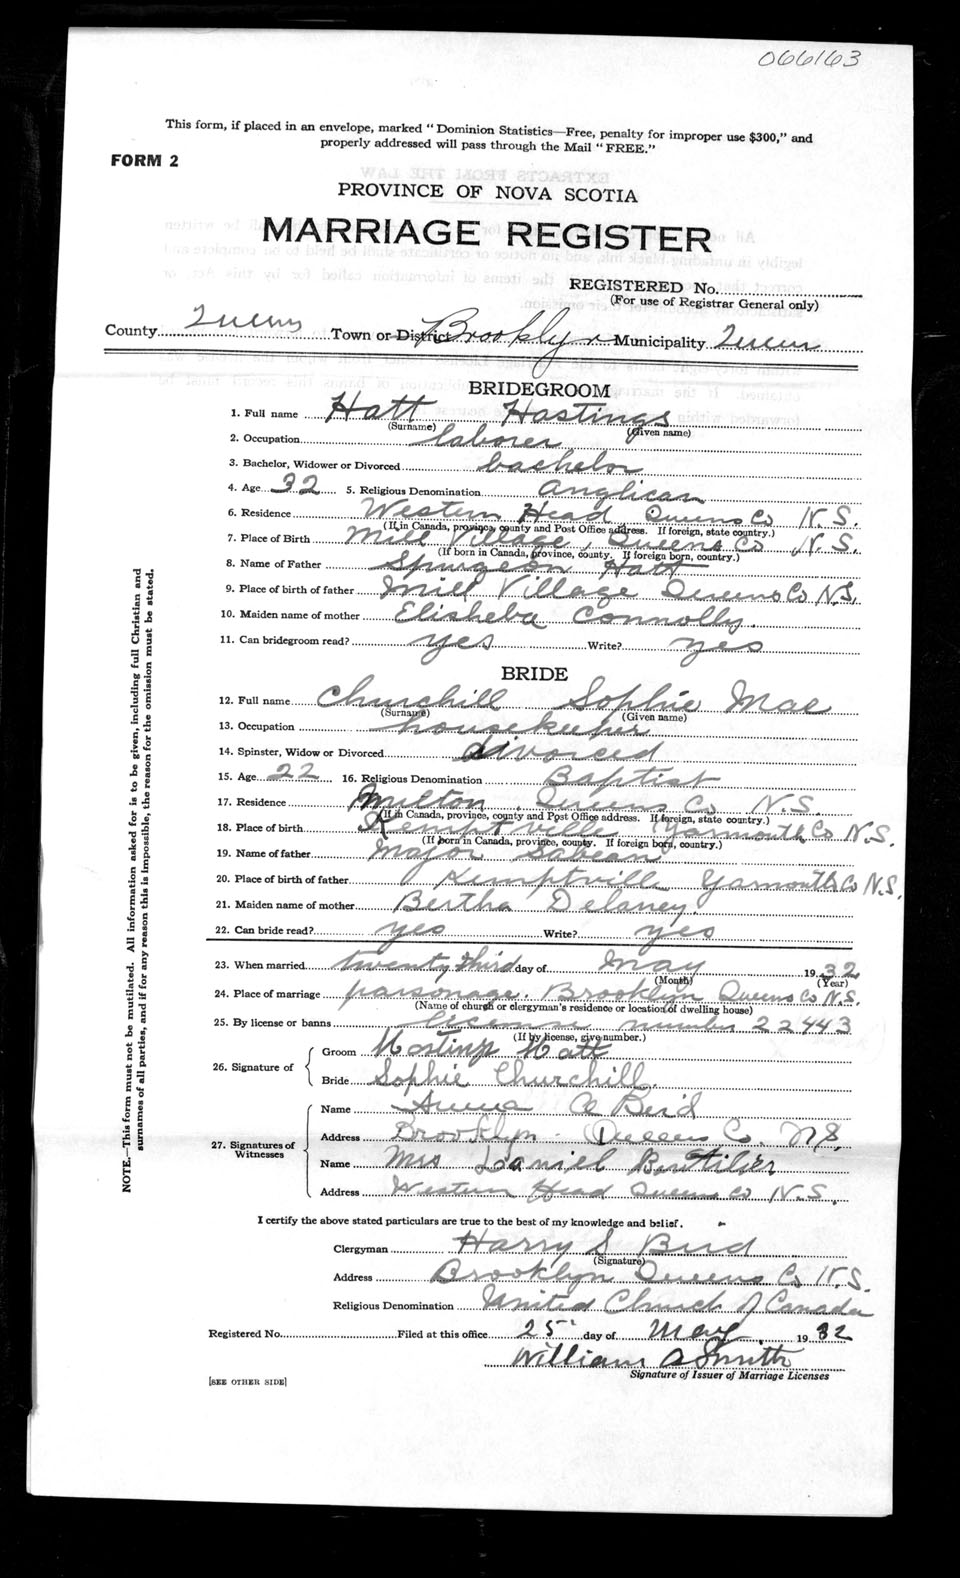 066163
This form, if placed in an envelope, marked "Dominion Statistics—Free, penalty for improper use $300," and
properly addressed will pass through the Mail "FREE."
FORM 2
PROVINCE OF NOVA SCOTIA
MARRIAGE REGISTER
REGISTERED No.
(For use of Registrar General only)
County Queens Town or District Brooklyn Municipality Queens
BRIDEGROOM
1. Full name Hatt Hastings
(Surname) (Given name)
2. Occupation laborer
3. Bachelor, Widower or Divorced bachelor
4. Age 32 5. Religious Denomination Anglican
6. Residence Western Head Queens Co N.S.
(If in Canada, province, county and Post Office address. If foreign, state country.)
7. Place of Birth Mill Village, Queens Co N.S.
(If born in Canada, province, county. If foreign born, country.)
8. Name of Father Spurgeon Hatt
9. Place of birth of father Mill Village Queens Co N.S.
10. Maiden name of mother Elisheba Connolly.
11. Can bridegroom read? yes Write? yes
BRIDE
12. Full name Churchill Sophie Mae
(Surname) (Given name)
13. Occupation housekeeper
14. Spinster, Widow or Divorced divorced
15. Age 22 16. Religious Denomination Baptist
17. Residence Milton, Queens Co N.S.
(If in Canada, province, county and Post Office address. If foreign, state country.)
18. Place of birth Kemptville Yarmouth Co N.S.
(If born in Canada, province, county. If foreign born, country.)
19. Name of father Major Sabean
20. Place of birth of father Kemptville Yarmouth Co N.S.
21. Maiden name of mother Bertha Delaney.
22. Can bride read? yes Write? yes
23. When married twenty third day of May 1932
(Month) (Year)
24. Place of marriage parsonage. Brooklyn Queens Co N.S.
(Name of church or clergyman's residence or location of dwelling house)
25. By license or banns license number 22443
(If by license, give number.)
26. Signature of Groom Hastings Hatt
Bride Sophie Churchill.
27. Signatures of Witnesses
Name Anna A Bird
Address Brooklyn Queens Co. N.S.
Name Mrs Daniel Boutilier
Address Western Head Queens Co N.S.
I certify the above stated particulars are true to the best of my knowledge and belief.
Clergyman Harry S Bird
(Signature)
Address Brooklyn Queens Co N.S.
Religious Denomination United Church of Canada
Registered No. Filed at this office 25 day of May. 1932
William A Smith
Signature of Issuer of Marriage Licenses
[SEE OTHER SIDE]
NOTE.—This form must not be mutilated. All information asked for is to be given, including full Christian and
surnames of all parties, and if for any reason this is impossible, the reason for the omission must be stated.